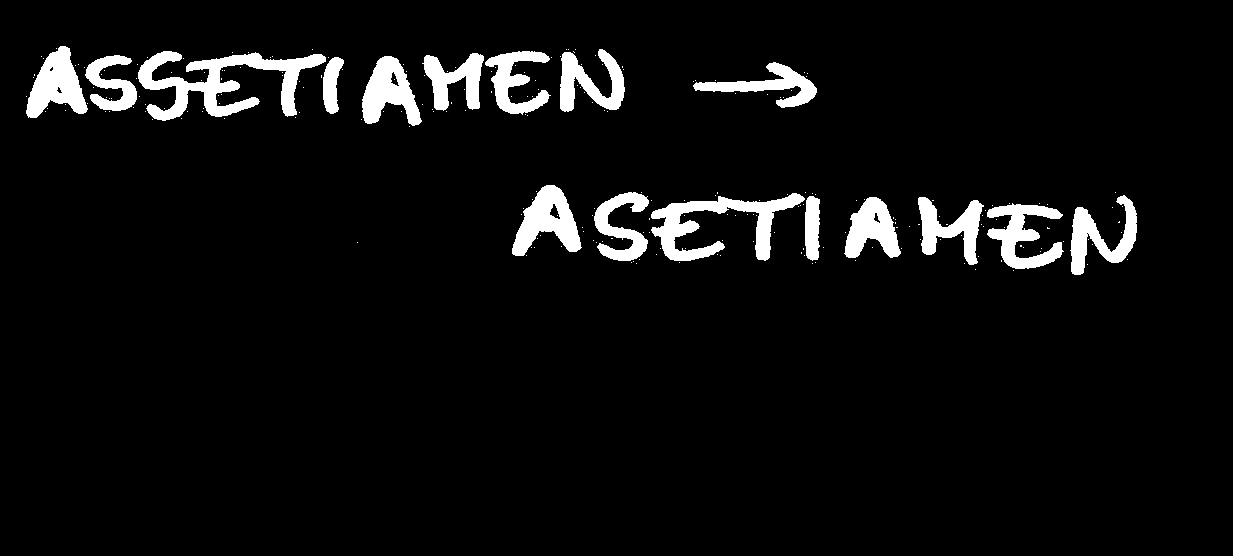 ASSETIAMEN →
ASETIAMEN